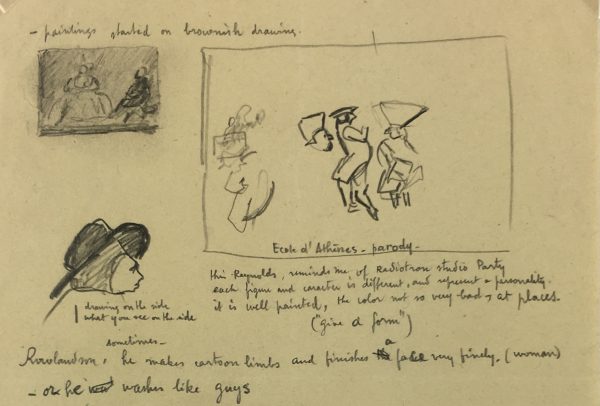 - paintings started on brownish drawing.
Ecole d'Athènes - parody -
this Reynolds, reminds me of Radiotron studio Party
each figure and caracter is different, and represent a personality.
it is well painted, the color not so very bad, at places.
("give a form")
drawing on the side
what you see on the side
sometimes -
Rowlandson, he makes cartoon limbs and finishes a face very finely. (woman)
- or he washes like guys